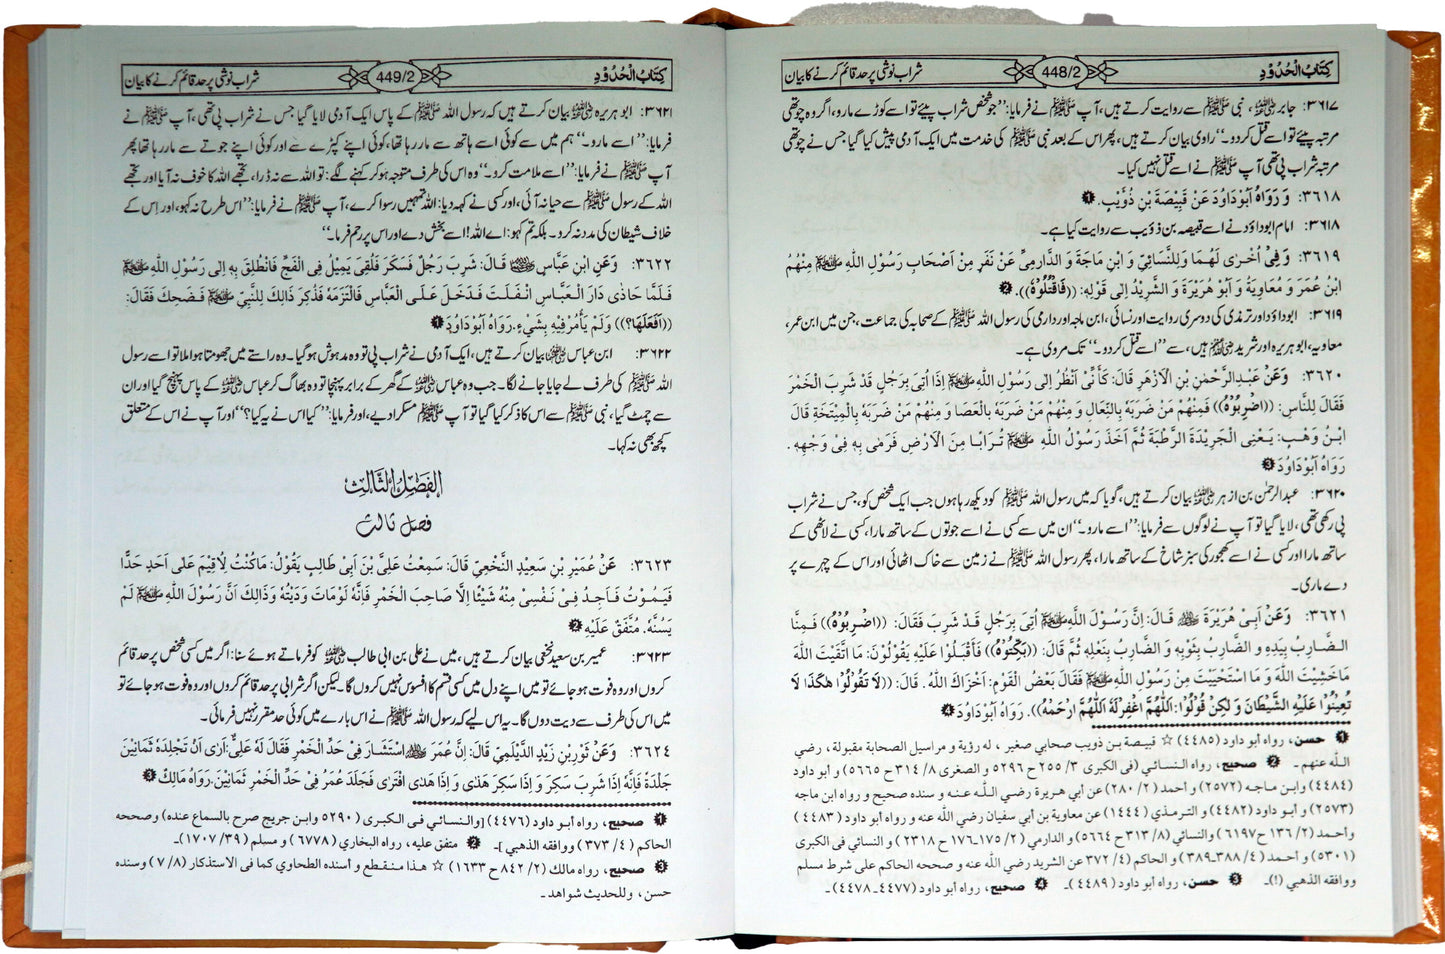 کِتَابُ الْحُدُوْدِ 448/2 شراب نوشی پر حد قائم کرنے کا بیان
۳۶۱۷: جابر ﷛، نبی ﷺ سے روایت کرتے ہیں، آپ ﷺ نے فرمایا: ’’جو شخص شراب پیئے تو اسے کوڑے مارو، اگر وہ چوتھی
مرتبہ پیئے تو اسے قتل کر دو۔‘‘ راوی بیان کرتے ہیں، پھر اس کے بعد نبی ﷺ کی خدمت میں ایک آدمی پیش کیا گیا جس نے چوتھی
مرتبہ شراب پی تھی آپ ﷺ نے اسے قتل نہیں کیا۔
۳۶۱۸: وَ رَوَاهُ اَبُوْدَاوُدَ عَنْ قَبِيْصَةَ بْنِ ذُؤَيْبٍ. ❶
۳۶۱۸: امام ابوداؤد نے اسے قبیصہ بن ذؤیب سے روایت کیا ہے۔
۳۶۱۹: وَ فِيْ اُخْرٰى لَهُمَا وَلِلنَّسَائِيِّ وَ ابْنِ مَاجَةَ وَ الدَّارِمِيِّ عَنْ نَفَرٍ مِنْ اَصْحَابِ رَسُوْلِ اللّٰهِ ﷺ مِنْهُمُ
ابْنُ عُمَرَ وَ مُعَاوِيَةُ وَ اَبُوْ هُرَيْرَةَ وَ الشَّرِيْدُ اِلٰى قَوْلِهٖ: ((فَاقْتُلُوْهُ)). ❷
۳۶۱۹: ابوداؤد اور ترمذی کی دوسری روایت اور نسائی، ابن ماجہ اور دارمی کی رسول اللہ ﷺ کے صحابہ کی جماعت، جن میں ابن عمر،
معاویہ، ابو ہریرہ اور شرید ہیں، سے ’’اسے قتل کر دو۔‘‘ تک مروی ہے۔
۳۶۲۰: وَعَنْ عَبْدِالرَّحْمٰنِ بْنِ الْاَزْهَرِ قَالَ: كَاَنِّيْ اَنْظُرُ اِلٰى رَسُوْلِ اللّٰهِ ﷺ اِذَا اُتِيَ بِرَجُلٍ قَدْ شَرِبَ الْخَمْرَ
فَقَالَ لِلنَّاسِ: ((اضْرِبُوْهُ)) فَمِنْهُمْ مَنْ ضَرَبَهٗ بِالنِّعَالِ وَ مِنْهُمْ مَنْ ضَرَبَهٗ بِالْعَصَا وَ مِنْهُمْ مَنْ ضَرَبَهٗ بِالْمِيْتَخَةِ قَالَ
ابْنُ وَهْبٍ: يَعْنِى الْجَرِيْدَةَ الرَّطْبَةَ ثُمَّ اَخَذَ رَسُوْلُ اللّٰهِ ﷺ تُرَابًا مِنَ الْاَرْضِ فَرَمٰى بِهٖ فِيْ وَجْهِهٖ.
رَوَاهُ اَبُوْدَاوُدَ ❸
۳۶۲۰: عبدالرحمٰن بن ازہر بیان کرتے ہیں، گویا کہ میں رسول اللہ ﷺ کو دیکھ رہا ہوں جب ایک شخص کو، جس نے شراب
پی رکھی تھی، لایا گیا تو آپ نے لوگوں سے فرمایا: ’’اسے مارو۔‘‘ ان میں سے کسی نے اسے جوتوں کے ساتھ مارا، کسی نے لاٹھی کے
ساتھ مارا اور کسی نے اسے کھجور کی سبز شاخ کے ساتھ مارا، پھر رسول اللہ ﷺ نے زمین سے خاک اٹھائی اور اس کے چہرے پر
دے ماری۔
۳۶۲۱: وَعَنْ اَبِيْ هُرَيْرَةَ قَالَ: اِنَّ رَسُوْلَ اللّٰهِ ﷺ اُتِيَ بِرَجُلٍ قَدْ شَرِبَ فَقَالَ: ((اضْرِبُوْهُ)) فَمِنَّا
الضَّارِبُ بِيَدِهٖ وَ الضَّارِبُ بِثَوْبِهٖ وَ الضَّارِبُ بِنَعْلِهٖ ثُمَّ قَالَ: ((بَكِّتُوْهُ)) فَاَقْبَلُوْا عَلَيْهِ يَقُوْلُوْنَ: مَا اتَّقَيْتَ اللّٰهَ
مَاخَشِيْتَ اللّٰهَ وَ مَا اسْتَحْيَيْتَ مِنْ رَسُوْلِ اللّٰهِ ﷺ فَقَالَ بَعْضُ الْقَوْمِ: اَخْزَاكَ اللّٰهُ. قَالَ: ((لَا تَقُوْلُوْا هٰكَذَا لَا
تُعِيْنُوْا عَلَيْهِ الشَّيْطَانَ وَ لٰكِنْ قُوْلُوْا: اَللّٰهُمَّ اغْفِرْلَهٗ اَللّٰهُمَّ ارْحَمْهُ)). رَوَاهُ اَبُوْدَاوُدَ ❹
❶ حسن، رواه أبو داود (٤٤٨٥) ☆ قبيصة بن ذويب صحابي صغير، له رؤية و مراسيل الصحابة مقبولة، رضي
الله عنهم۔ ❷ صحيح، رواه النسائي (في الكبرى ٣/ ٢٥٥ ح ٥٢٩٦ و الصغرى ٨/ ٣١٤ ح ٥٦٦٥) و أبو داود
(٤٤٨٤) وابن ماجه (٢٥٧٢) و أحمد (٢/ ٢٨٠) عن أبي هريرة رضي الله عنه و سنده صحيح و رواه ابن ماجه
(٢٥٧٣) و أبو داود (٤٤٨٢) و الترمذي (١٤٤٤) عن معاوية بن أبي سفيان رضي الله عنه و رواه أبو داود (٤٤٨٣)
وأحمد (٢/ ١٣٦ ح ٦١٩٧) والنسائي (٨/ ٣١٣ ح ٥٦٦٤) و الدارمي (٢/ ١٧٥۔١٧٦ ح ٢٣١٨) و النسائي في الكبرى
(٥٣٠١) و أحمد (٤/ ٣٨٨۔٣٨٩) و الحاكم (٤/ ٣٧٢) عن الشريد رضي الله عنه و صححه الحاكم على شرط مسلم
ووافقه الذهبي (!)۔ ❸ حسن، رواه أبو داود (٤٤٨٩)۔ ❹ صحيح، رواه أبو داود (٤٤٧٧۔٤٤٧٨)۔
کِتَابُ الْحُدُوْدِ 449/2 شراب نوشی پر حد قائم کرنے کا بیان
۳۶۲۱: ابو ہریرہ ﷛ بیان کرتے ہیں کہ رسول اللہ ﷺ کے پاس ایک آدمی لایا گیا جس نے شراب پی تھی، آپ ﷺ نے
فرمایا: ’’اسے مارو۔‘‘ ہم میں سے کوئی اسے ہاتھ سے مار رہا تھا، کوئی اپنے کپڑے سے اور کوئی اپنے جوتے سے مار رہا تھا پھر
آپ ﷺ نے فرمایا: ’’اسے ملامت کرو۔‘‘ وہ اس کی طرف متوجہ ہو کر کہنے لگے: تو اللہ سے نہ ڈرا، تجھے اللہ کا خوف نہ آیا اور تجھے
اللہ کے رسول ﷺ سے حیا نہ آئی، اور کسی نے کہہ دیا: اللہ تمہیں رسوا کرے، آپ ﷺ نے فرمایا: ’’اس طرح نہ کہو، اور اس کے
خلاف شیطان کی مدد نہ کرو۔ بلکہ تم کہو: اے اللہ! اسے بخش دے اور اس پر رحم فرما۔‘‘
۳۶۲۲: وَعَنِ ابْنِ عَبَّاسٍ قَالَ: شَرِبَ رَجُلٌ فَسَكَرَ فَلُقِيَ يَمِيْلُ فِي الْفَجِّ فَانْطُلِقَ بِهٖ اِلٰى رَسُوْلِ اللّٰهِ ﷺ
فَلَمَّا حَاذٰى دَارَ الْعَبَّاسِ انْفَلَتَ فَدَخَلَ عَلَى الْعَبَّاسِ فَالْتَزَمَهٗ فَذُكِرَ ذَالِكَ لِلنَّبِيِّ ﷺ فَضَحِكَ فَقَالَ:
((اَفَعَلَهَا؟)) وَلَمْ يَاْمُرْ فِيْهِ بِشَيْءٍ. رَوَاهُ اَبُوْدَاوُدَ ❶
۳۶۲۲: ابن عباس بیان کرتے ہیں، ایک آدمی نے شراب پی تو وہ مدہوش ہو گیا۔ وہ راستے میں جھومتا ہوا ملا تو اسے رسول
اللہ ﷺ کی طرف لے جایا جانے لگا۔ جب وہ عباس ﷛ کے گھر کے برابر پہنچا تو وہ بھاگ کر عباس ﷛ کے پاس پہنچ گیا اور ان
سے چمٹ گیا، نبی ﷺ سے اس کا ذکر کیا گیا تو آپ ﷺ مسکرا دیے، اور فرمایا: ’’کیا اس نے یہ کیا؟‘‘ اور آپ نے اس کے متعلق
کچھ بھی نہ کہا۔
الفَصْلُ الثَّالِث
فصل ثالث
۳۶۲۳: عَنْ عُمَيْرِ بْنِ سَعِيْدِ النَّخْعِيِّ قَالَ: سَمِعْتُ عَلِيَّ بْنَ اَبِيْ طَالِبٍ يَقُوْلُ: مَاكُنْتُ لِاُقِيْمَ عَلٰى اَحَدٍ حَدًّا
فَيَمُوْتُ فَاَجِدُ فِيْ نَفْسِيْ مِنْهُ شَيْئًا اِلَّا صَاحِبَ الْخَمْرِ فَاِنَّهٗ لَوْمَاتَ وَدَيْتُهٗ وَذَالِكَ اَنَّ رَسُوْلَ اللّٰهِ ﷺ لَمْ
يَسُنَّهٗ. مُتَّفَقٌ عَلَيْهِ ❷
۳۶۲۳: عمیر بن سعید نخعی بیان کرتے ہیں، میں نے علی بن ابی طالب ﷛ کو فرماتے ہوئے سنا: اگر میں کسی شخص پر حد قائم
کروں اور وہ فوت ہو جائے تو میں اپنے دل میں کسی قسم کا افسوس نہیں کروں گا۔ لیکن اگر شرابی پر حد قائم کروں اور وہ فوت ہو جائے تو
میں اس کی طرف سے دیت دوں گا۔ یہ اس لیے کہ رسول اللہ ﷺ نے اس بارے میں کوئی حد مقرر نہیں فرمائی۔
۳۶۲۴: وَعَنْ ثَوْرِبْنِ زَيْدٍ الدَّيْلَمِيِّ قَالَ: اِنَّ عُمَرَ اسْتَشَارَ فِيْ حَدِّ الْخَمْرِ فَقَالَ لَهٗ عَلِيٌّ: اَرٰى اَنْ تَجْلِدَهٗ ثَمَانِيْنَ
جَلْدَةً فَاِنَّهٗ اِذَا شَرِبَ سَكِرَ وَ اِذَا سَكِرَ هَذٰى وَ اِذَا هَذٰى افْتَرٰى فَجَلَدَ عُمَرُ فِيْ حَدِّ الْخَمْرِ ثَمَانِيْنَ. رَوَاهُ مَالِكٌ ❸
❶ صحيح، رواه أبو داود (٤٤٧٦) [والنسائي في الكبرى (٥٢٩٠) وابن جريج صرح بالسماع عنده) وصححه
الحاكم (٤/ ٣٧٣) ووافقه الذهبي]۔ ❷ متفق عليه، رواه البخاري (٦٧٧٨) و مسلم (٣٩/ ١٧٠٧)۔
❸ صحيح، رواه مالك (٢/ ٨٤٢ ح ١٦٣٣) ☆ هذا منقطع و أسنده الطحاوي كما في الاستذكار (٨/ ٧) وسنده
حسن، وللحديث شواهد۔